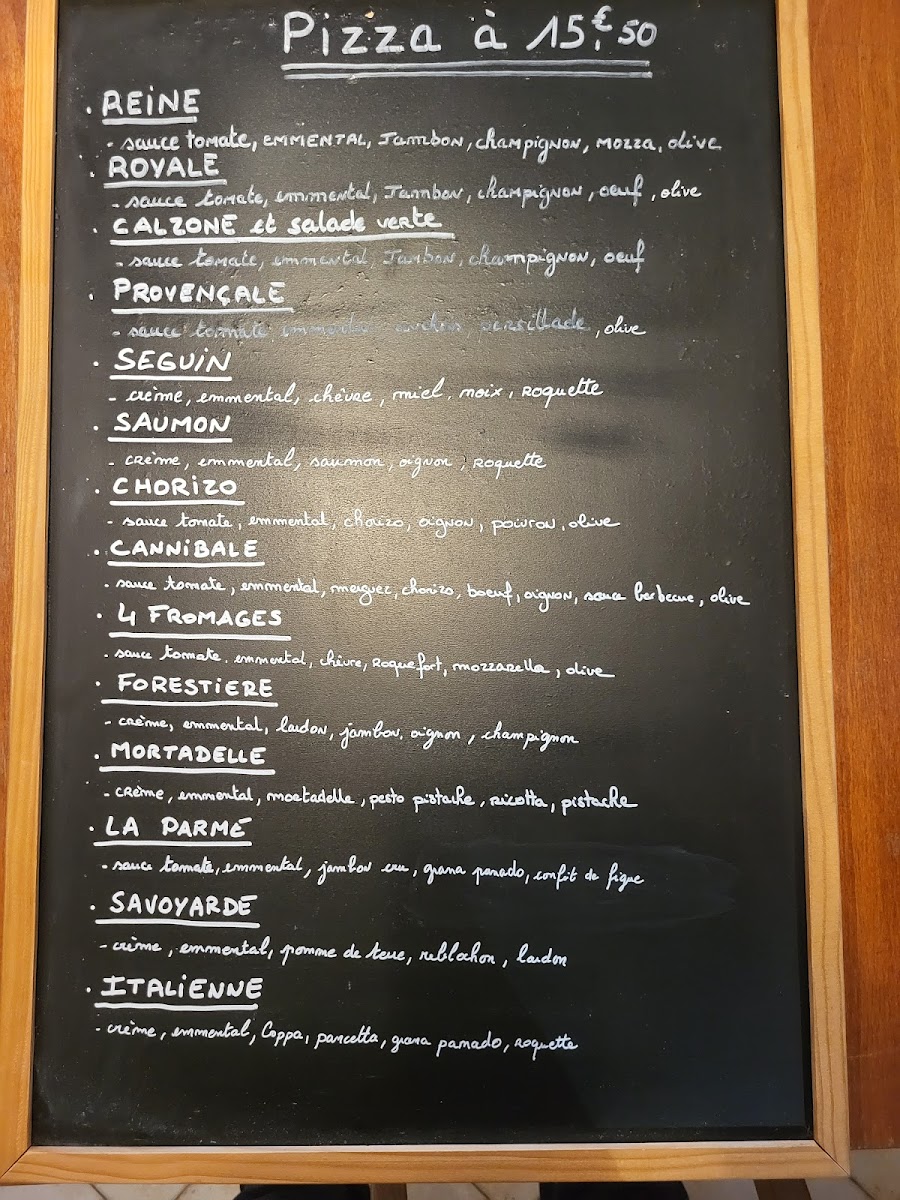 Pizza à 15,€50
. REINE
- sauce tomate, EMMENTAL, Jambon, champignon, mozza, olive
. ROYALE
- sauce tomate, emmental, Jambon, champignon, oeuf, olive
. CALZONE et salade verte
- sauce tomate, emmental, Jambon, champignon, oeuf
. PROVENÇALE
- sauce tomate emmental persillade, olive
. SEGUIN
- crème, emmental, chèvre, miel, noix, Roquette
. SAUMON
- crème, emmental, saumon, oignon, Roquette
. CHORIZO
- sauce tomate, emmental, chorizo, oignon, poivron, olive
. CANNIBALE
- sauce tomate, emmental, merguez, chorizo, boeuf, oignon, sauce barbecue, olive
. 4 FROMAGES
- sauce tomate, emmental, chèvre, Roquefort, mozzarella, olive
. FORESTIERE
- crème, emmental, lardon, jambon, oignon, champignon
. MORTADELLE
- crème, emmental, mortadelle, pesto pistache, ricotta, pistache
. LA PARME
- sauce tomate, emmental, jambon cru, grana panado, confit de figue
. SAVOYARDE
- crème, emmental, pomme de terre, reblochon, lardon
. ITALIENNE
- crème, emmental, Coppa, pancetta, grana panado, roquette